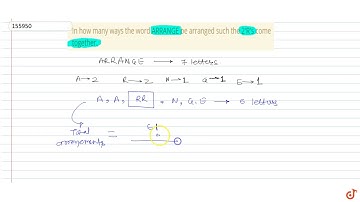 155950
In how many ways the word ARRANGE be arranged such the 2'R's come
together.
ARRANGE → 7 letters
A→2 R→2 N→1 G→1 E→1
A, A, RR, N, G, E → 6 letters
Total
arrangements = 6!